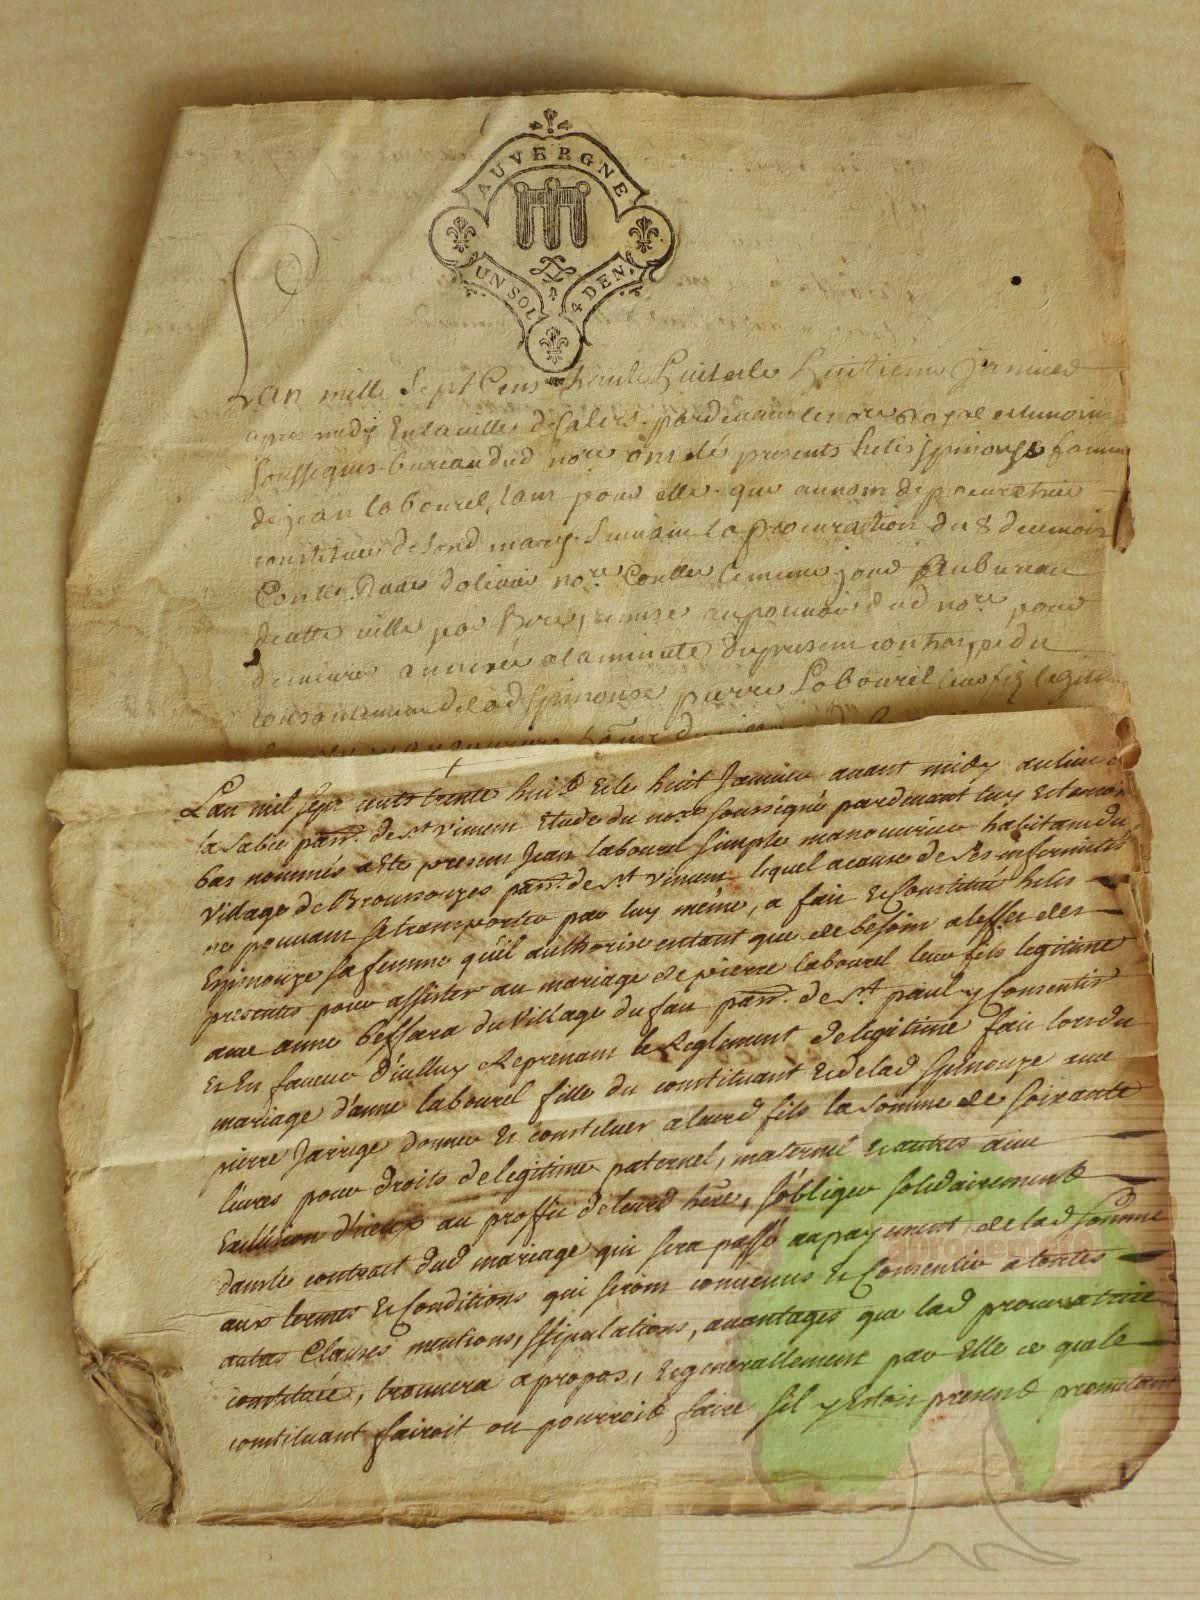 AUVERGNE
UN SOL 4 DEN.
Lan mille Sept Cens trente huit et le huitieme Janvier
apres midy En la ville de Salers pardevant le nore royal et temoins
soussignes bureau dud nore ont été presents helis Spinouze femme
de jean labourel, tant pour elle que au nom de procuratrice
constituée de sond mary suivant la procuration du 8 du mois
Contlée par dolivier nore Conllée le meme jour Au bureau
de cette ville par remise au pouvoir dud nore pour
demeurer annexée a la minute du present contrat, et du
consentement de lad Spinouse pierre Labourel leur fils legitime
Lan mil sept cents trente huit et le huit Janvier avant midy au lieu de
la Sabie parr. de st Vincent Etude du nore soussigné pardevant luy et temoins
bas nommés a eté present Jean labourel simple manouvrier habitant du
Village de Broussouzes parr. de st Vincent lequel a cause de ses infirmités
ne pouvant se transporter par luy méme, a fait & Constitué helis
Espinouze sa femme qu'il authorise entant que de besoin a leffet des
presentes pour assister au mariage de pierre labourel leur fils legitime
avec anne Beffara du Village du fau parr. de st paul y Consentir
Et En faveur d'icelluy Reprenant le Reglement de legitime fait lors du
mariage d'anne labourel fille du constituant & de lad Spinouze avec
pierre Jarrige donner & constituer a leurd fils la somme de soixante
livres pour droits de legitime paternel, maternel & autres avec
Exclusion d'iceux au proffit de leurd herer, s'obliger solidairement
dans le contrat dud mariage qui sera passé au payement de lad somme
aux termes & Conditions qui seront convenus & Consentir a toutes
autres Clauses mentions, stipulations, avantages que lad procuratrice
constituée, trouvera apropos, & generallement par Elle ce que le
constituant fairoit ou pourroit faire sil y Estoit present promettant